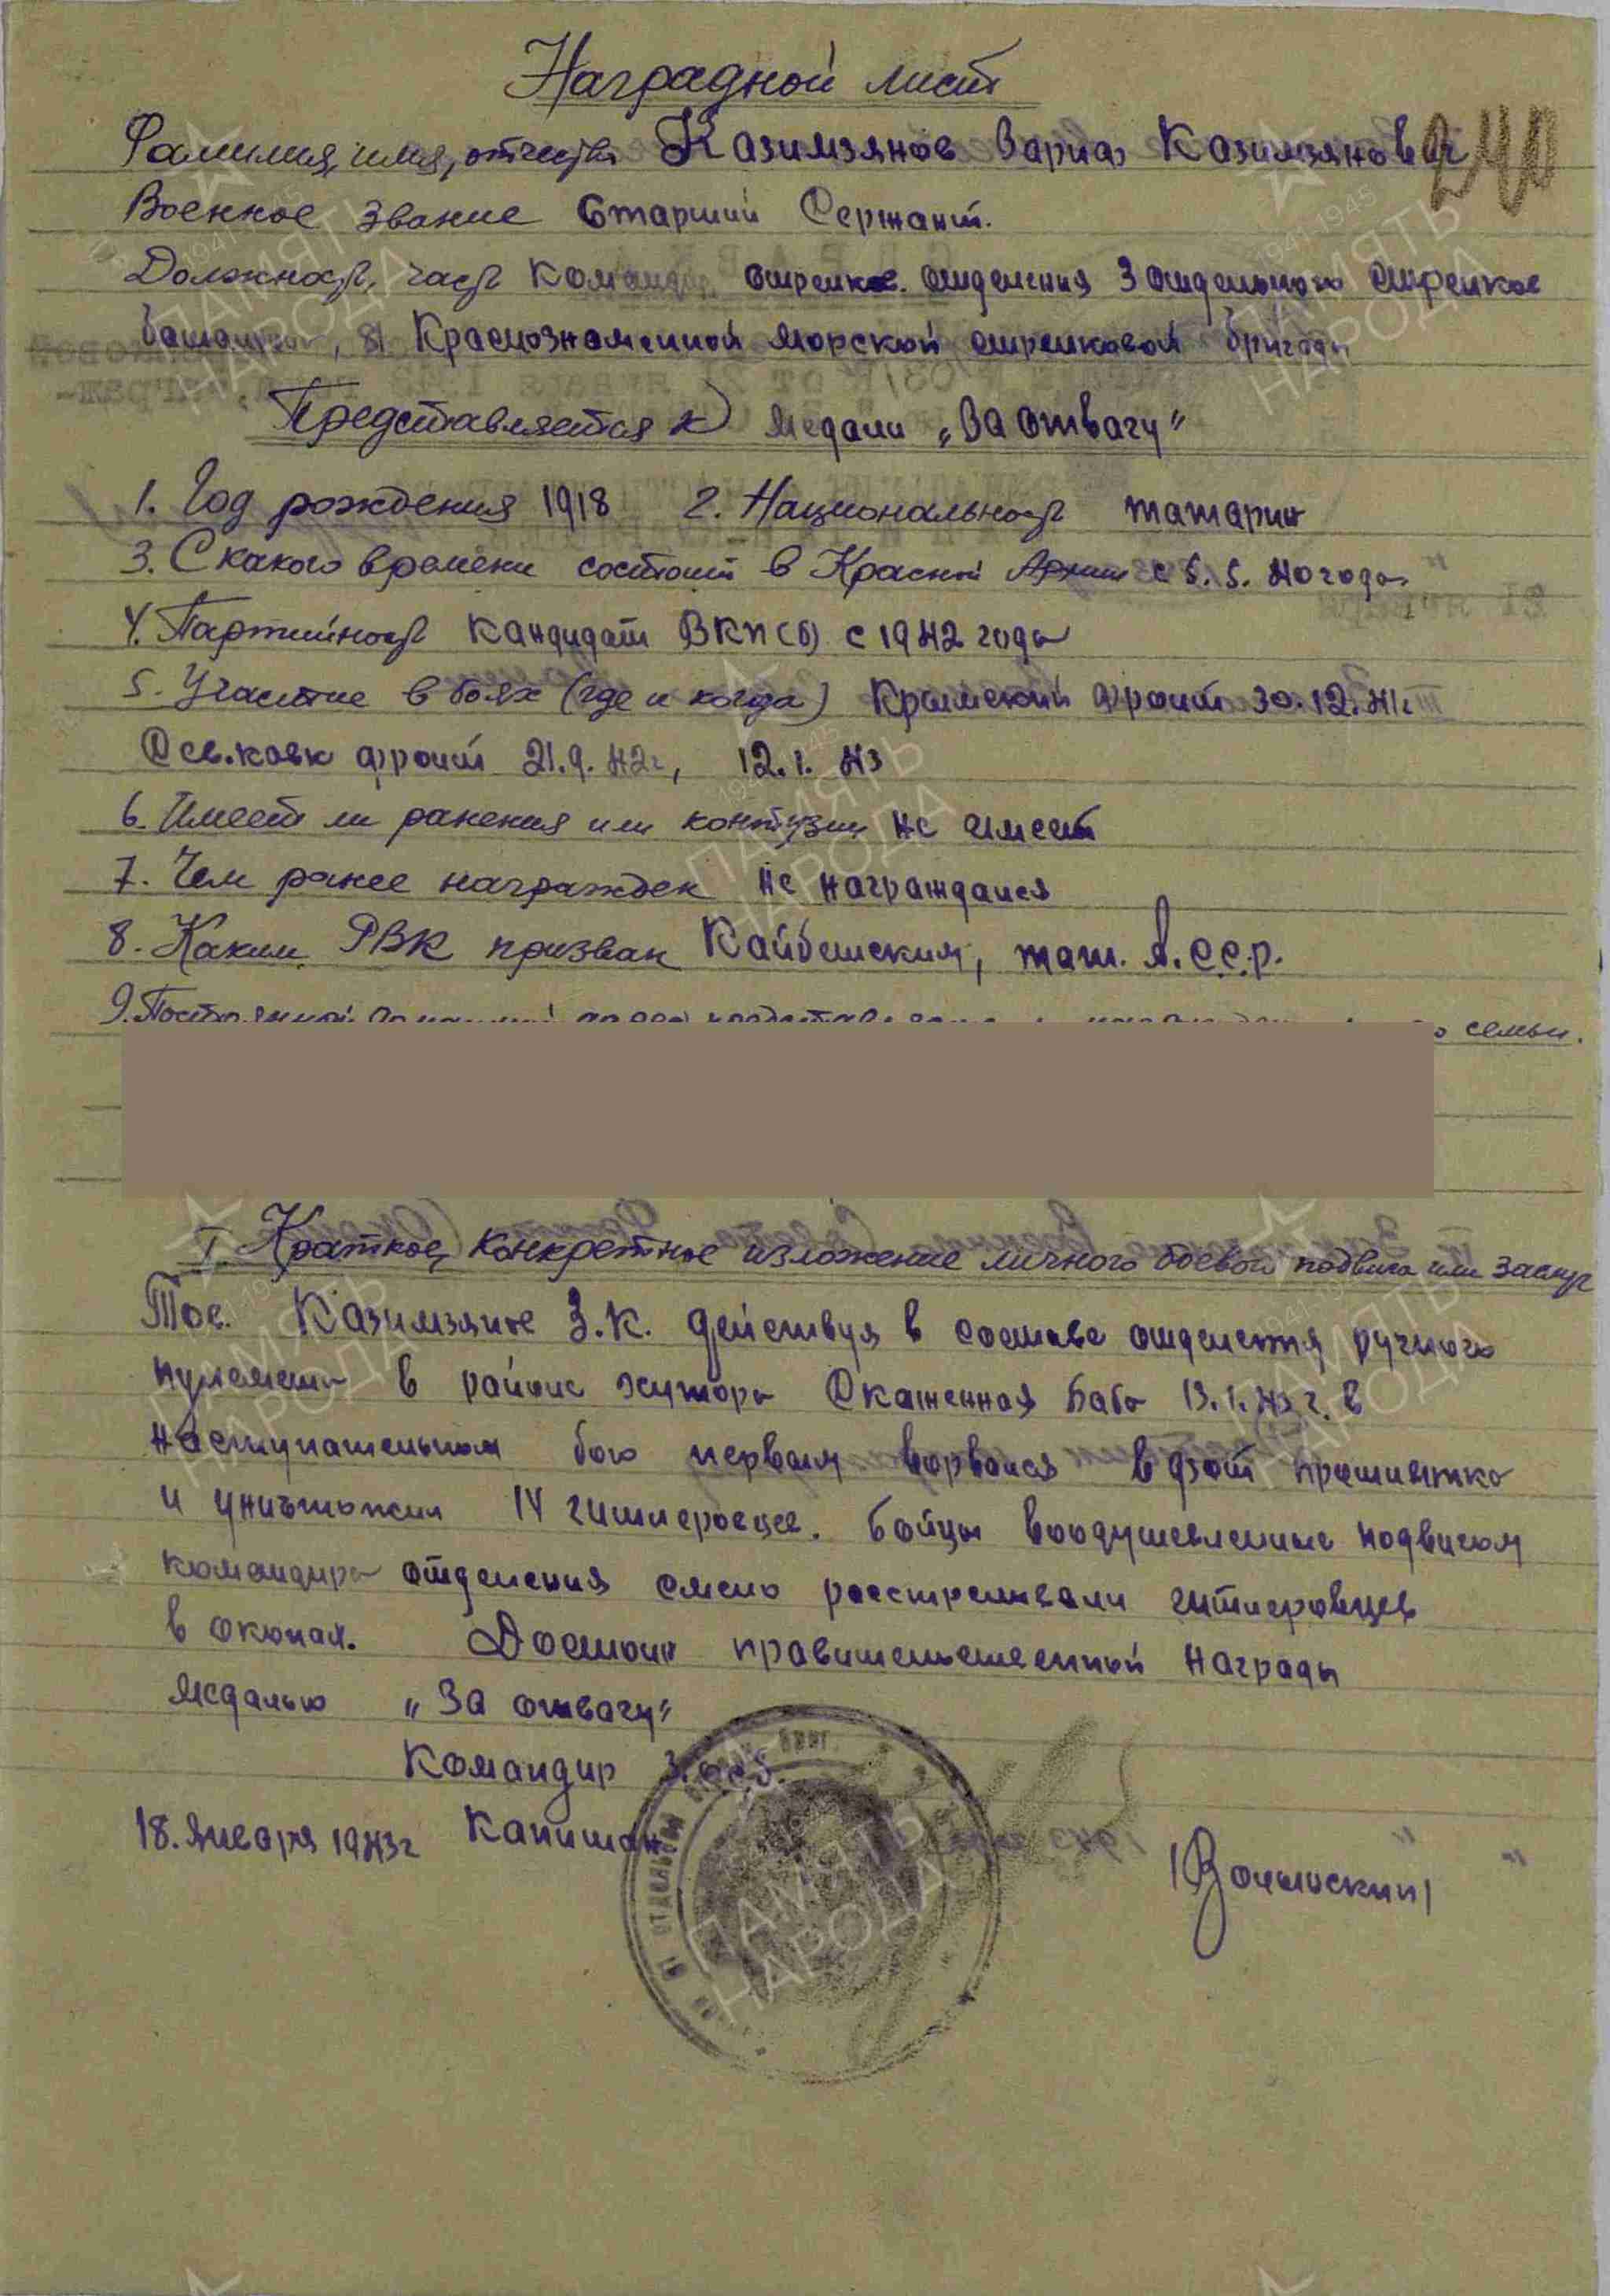 240
Наградной лист
Фамилия, имя, отчество Казимзянов Зариф Казимзянович
Военное звание Старший Сержант.
Должность, часть Командир стрелков. отделения 3 отдельного стрелков
батальона, 81 Краснознаменной морской стрелковой бригады
Представляется к медали „За отвагу"
1. Год рождения 1918 2. Национальность татарин
3. С какого времени состоит в Красной Армии с 5.5. 40 года
4. Партийность кандидат ВКП(б) с 1942 года
5. Участие в боях (где и когда) Крымский фронт 30.12.41г
Сев.кавк фронт 21.9.42г, 12.1.43
6. Имеет ли ранения или контузии не имеет
7. Чем ранее награжден не награждался
8. Каким РВК призван Кайбешским, тат. А.С.С.Р.
9. Постоянный семьи.
I. Краткое, конкретное изложение личного боевого подвига или заслуг
Тов. Казимзянов З.К. действуя в составе отделения ручного
пулемета в районе хутора Скаженная Баба 13.1.43г. в
наступательном бою первым ворвался в дзот противника
и уничтожил 14 гитлеровцев. Бойцы воодушевленные подвигом
командира отделения смело расстреливали гитлеровцев
в окопах. Достоин правительственной награды
медалью „За отвагу"
Командир 3 осб
18. Января 1943г Капитан /Волынский/
ПАМЯТЬ НАРОДА
1941-1945